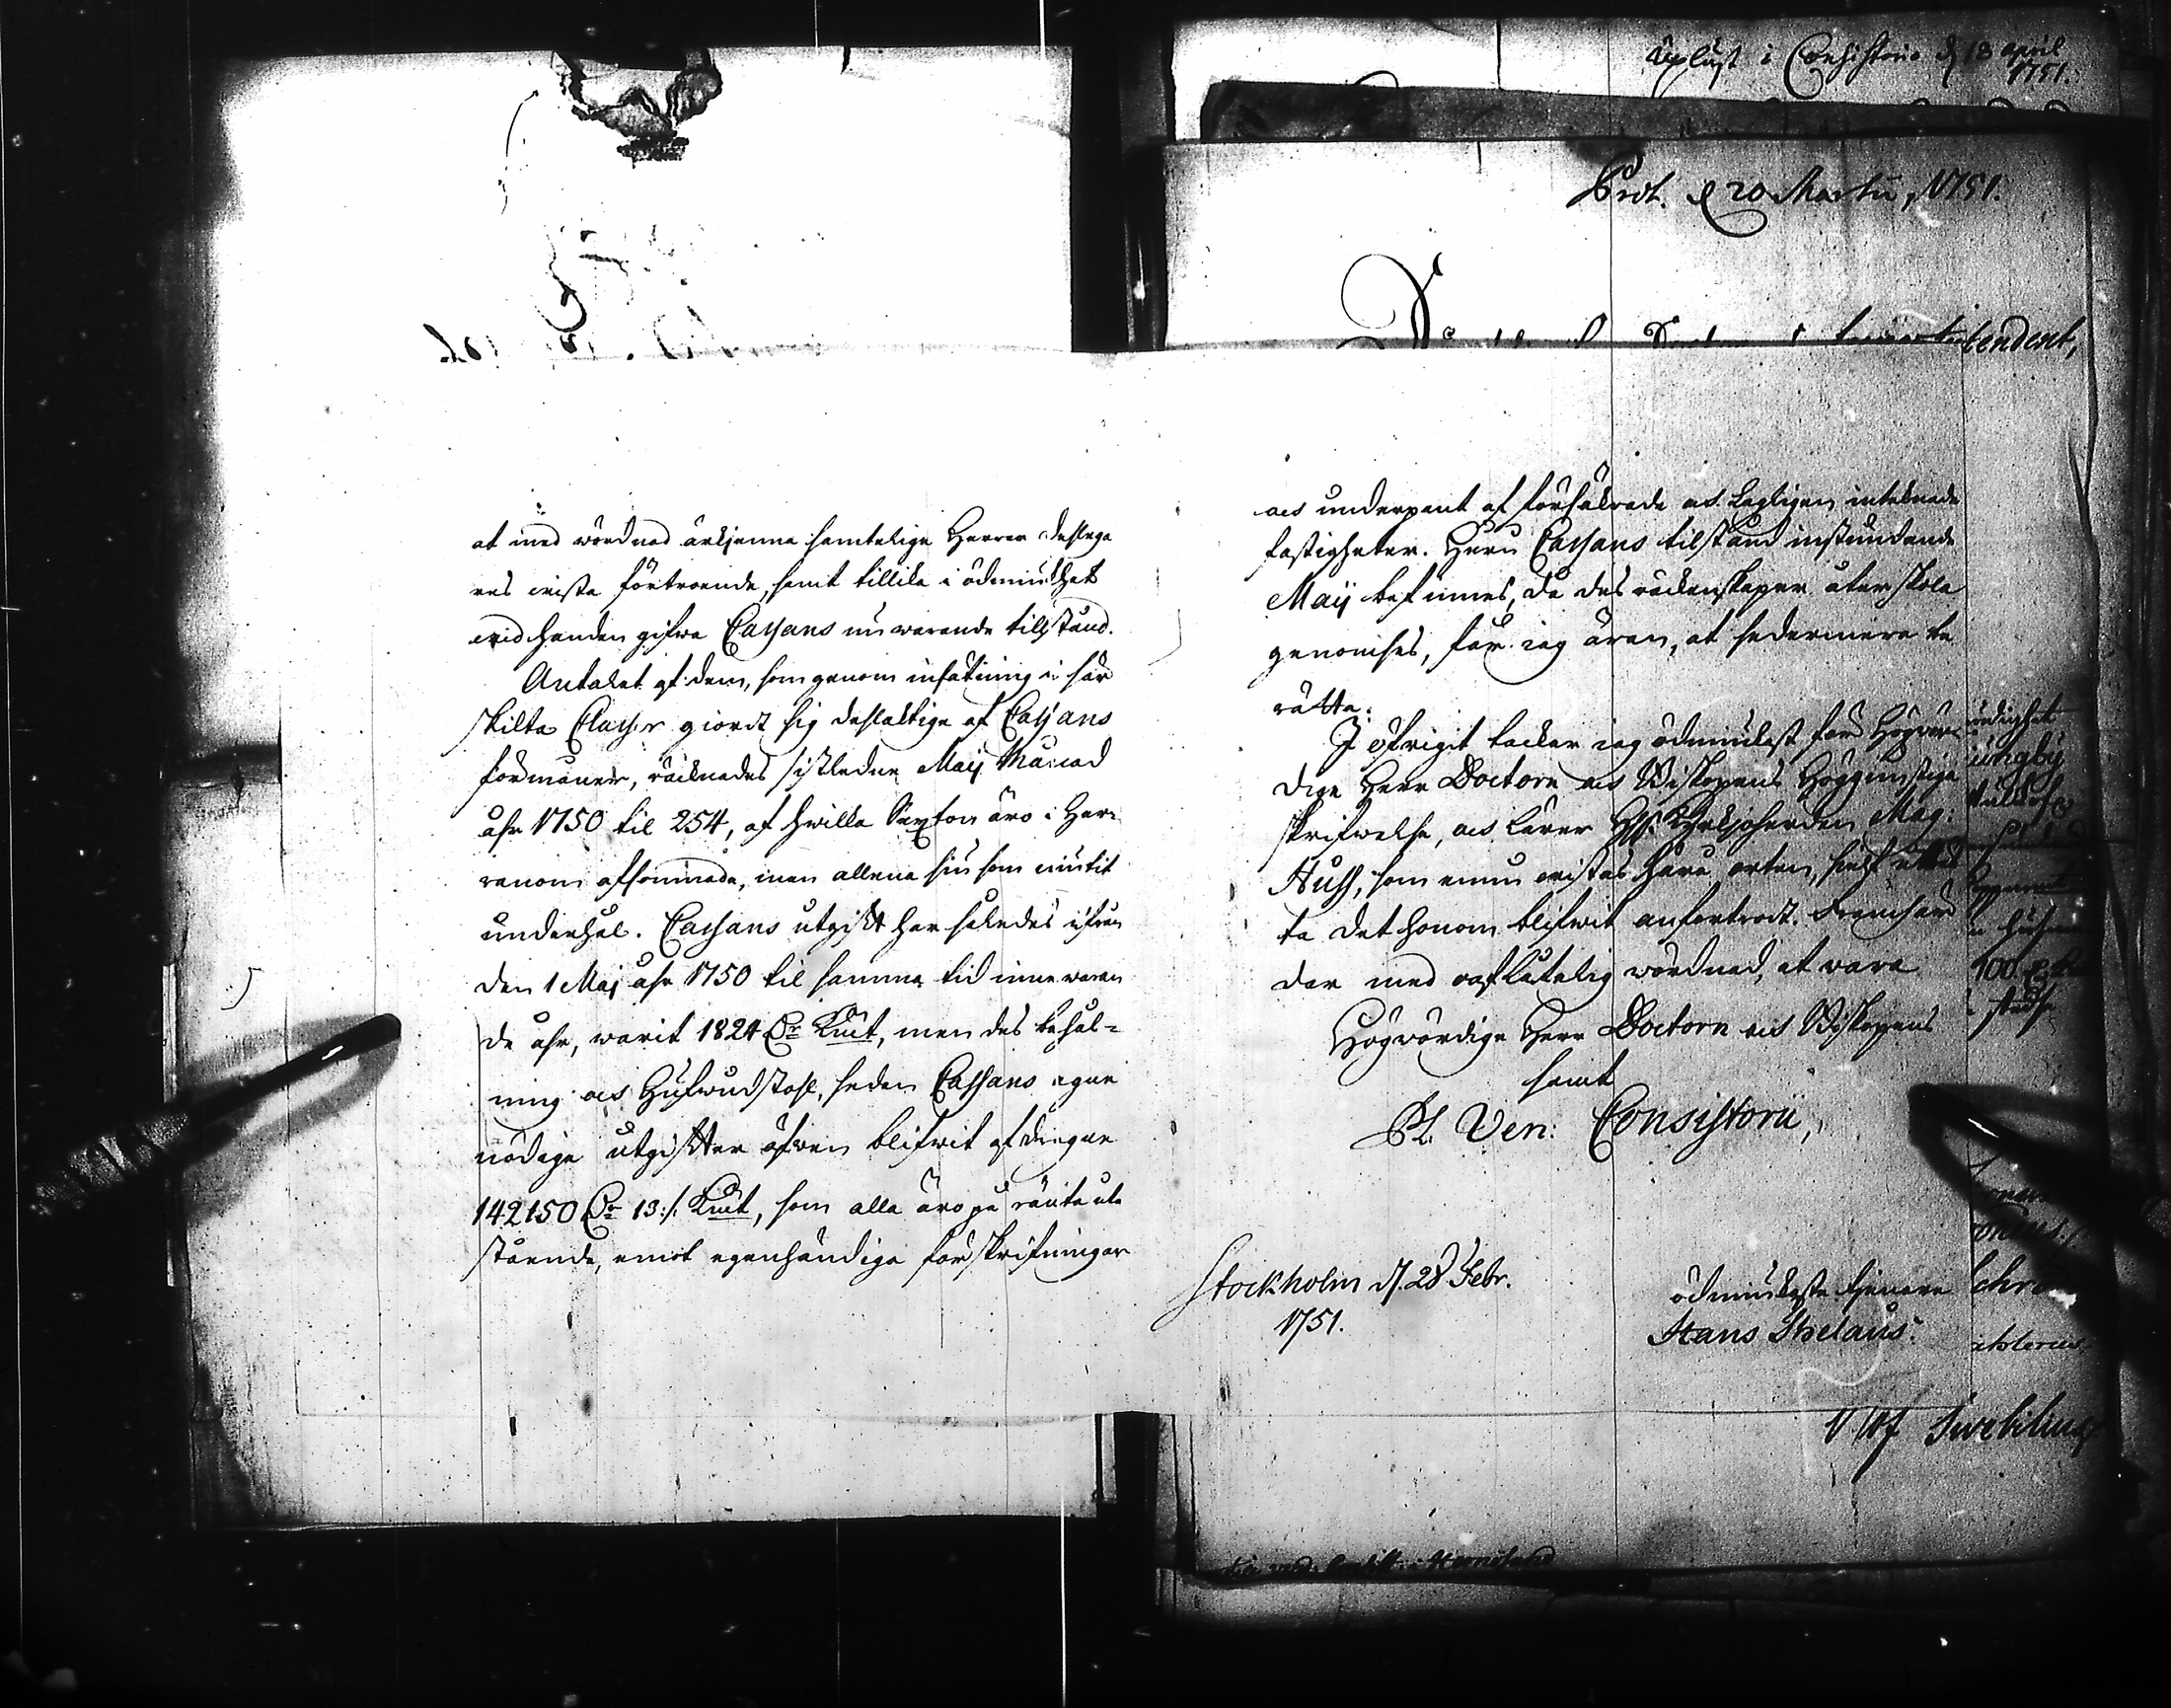 Upläst i Consistorio d 13 april
1751.
Prod. d 20 Martii, 1751.
tendent,
at med wördnad ärkjenna samtelige Herrar deltaga
res wista förtroende, samt tillika i ödmiukhet
wid handen gifwa Cassans nu warande tillstånd.
Antalet af dem, som genom insätning i sär
skilta Classer giordt sig delaktige af Cassans
förmåner, räcknades sistledne Maij Månad
åhr 1750 til 254, af hwilka Sexton äro i Her-
ranom afsomnade, men allena siu som niutit
underhål. Cassans utgift har således ifrån
den 1 Maj åhr 1750 til samma tid innewaran
de åhr, warit 1824 Dr Kmt, men des behål-
ning och Hufwudstohl, sedan Cassans egne
nödige utgifter äfwen blifwit afdragne
142150 Dr 13 :/. Kmt, som alla äro på ränta ute
stående, emot egenhändige förskrifningar
och underpant af försäkrade och Lagligen intecknade
fastigheter. Huru Cassans tilstånd instundande
Maij befinnes, då des räckenskaper åter skola
genomses, får jag äran, at sedermera be
rätta.
I öfrigit tackar jag ödmiukast för Högwör-
dige Herr Doctorn och Biskopens Höggunstiga
skrifwelse, och lärer H. Kyrkjoherden Mag:
Huss, som ännu wistas här å orten, sielf
ta det honom blifwit anförtrodt. Framhär
dar med oaflåtelig wördnad, at wara
Högwördige Herr Doctorn och Biskopens
samt
Pl. Ven: Consistorii,
Stockholm d. 28 Febr.
1751.
ödmiukaste tjenare
Hans Strelaus.